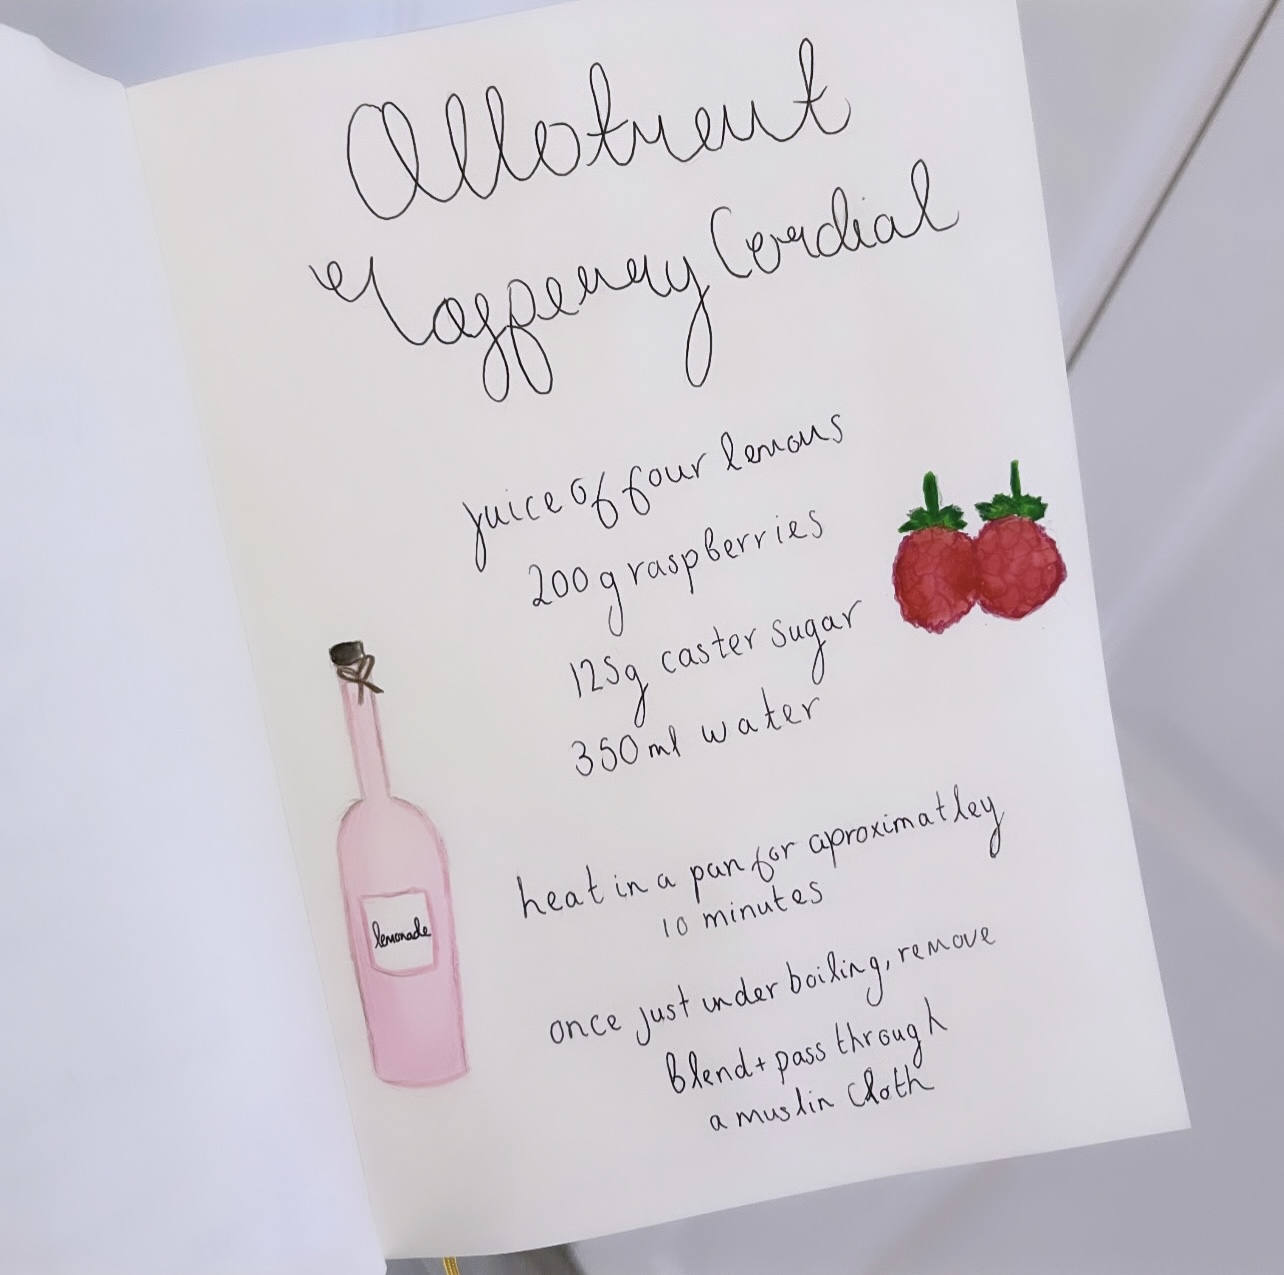 Allotment
Raspberry Cordial
juice of four lemons
200g raspberries
125g caster sugar
350ml water
heat in a pan for aproximatley
10 minutes
once just under boiling, remove
blend + pass through
a muslin cloth
lemonade